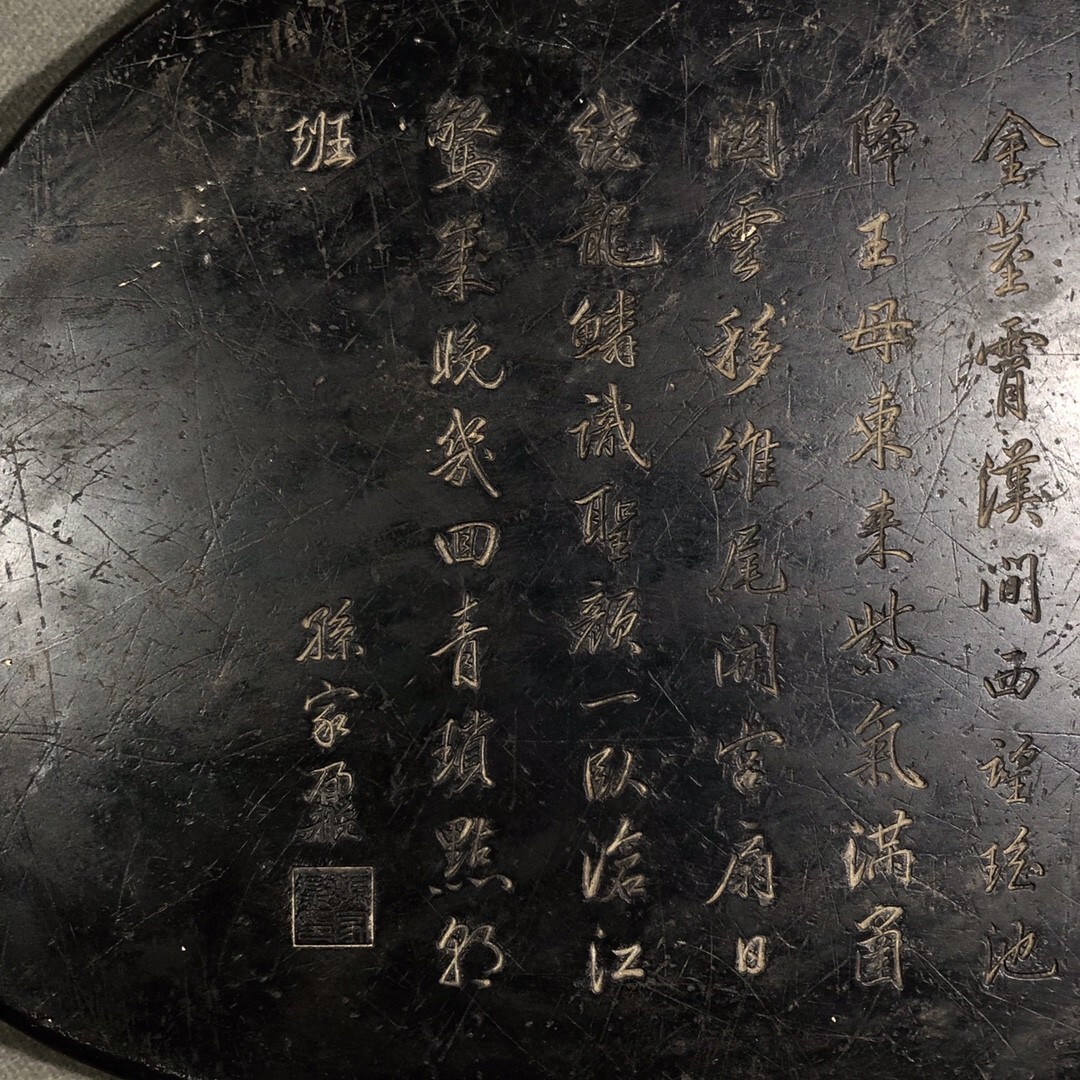 金莖霄漢間西望瑤池
降王母東來紫氣滿函
關雲移雉尾開宮扇日
繞龍鱗識聖顏一臥滄江
驚歲晚幾回青瑣點朝
班
孫家鼐